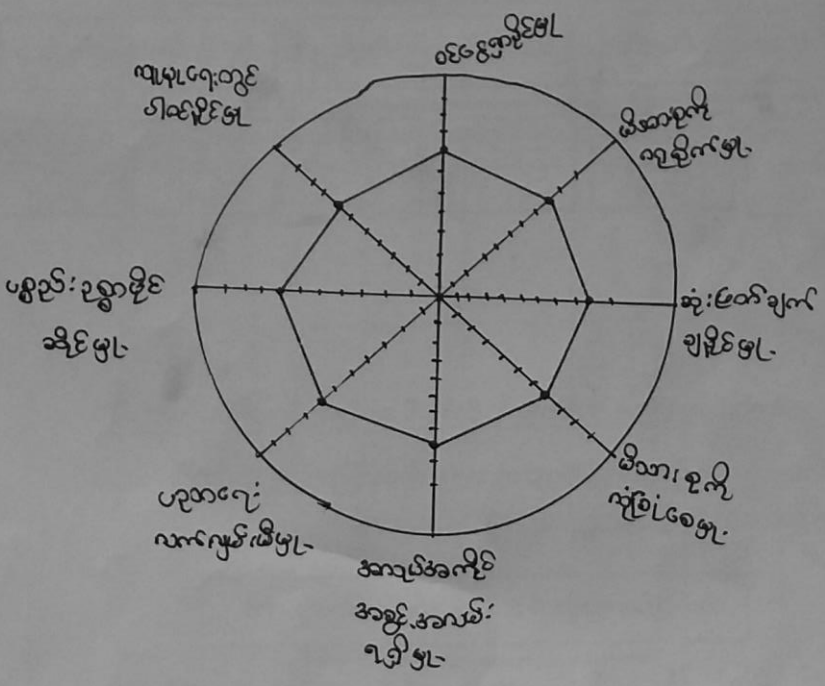 ဝင်ငွေရှာနိုင်မှု
မိသားစုကို
ဂရုစိုက်မှု
ဆုံးဖြတ်ချက်
ချနိုင်မှု
မိသားစုကို
ကုံခြုံစေမှု
အကူအညီ
အခွင့်အလမ်း
ရရှိမှု
ပညာရေး
လက်လှမ်းမီမှု
ပစ္စည်းဥစ္စာပိုင်
ဆိုင်မှု
လူမှုရေးတွင်
ပါဝင်နိုင်မှု